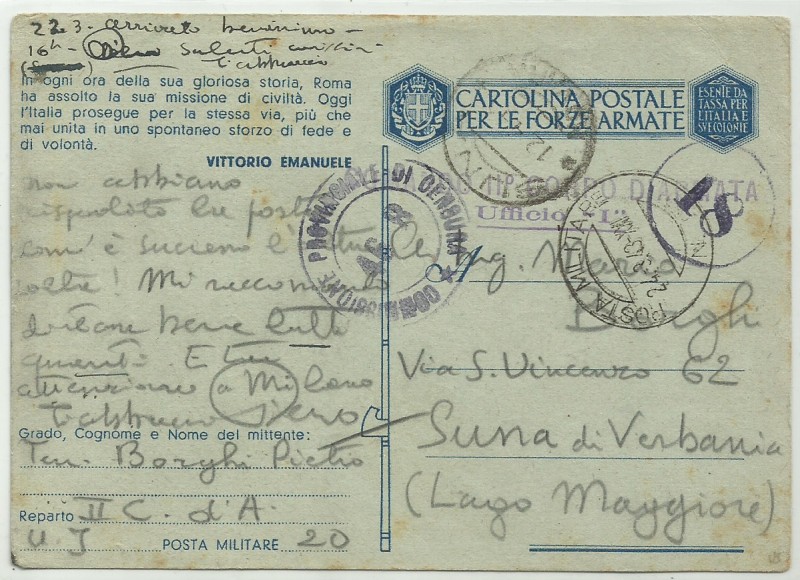 22.3 - arrivato benissimo -
16h - Piero Saluti
t'abbraccio
In ogni ora della sua gloriosa storia, Roma
ha assolto la sua missione di civiltà. Oggi
l'Italia prosegue per la stessa via, più che
mai unita in uno spontaneo sforzo di fede e
di volontà.
VITTORIO EMANUELE
CARTOLINA POSTALE
PER LE FORZE ARMATE
ESENTE DA
TASSA PER
L'ITALIA E
SVE COLONIE
non abbiano
rispedito la posta
com'è successo
volte! Mi raccomando
bene tutti
quanti. E tu
attenzione a Milano
t'abbraccio Piero
Grado, Cognome e Nome del mittente:
Ten. Borghi Pietro
Reparto II C. d'A.
U. I POSTA MILITARE 20
COMMISSIONE PROVINCIALE DI CENSURA
II° CORPO D'ARMATA
Ufficio "I"
18
POSTA MILITARE
24.3.42-XX
Al
Ing. Mario
Borghi
Via S. Vincenzo 62
Suna di Verbania
(Lago Maggiore)